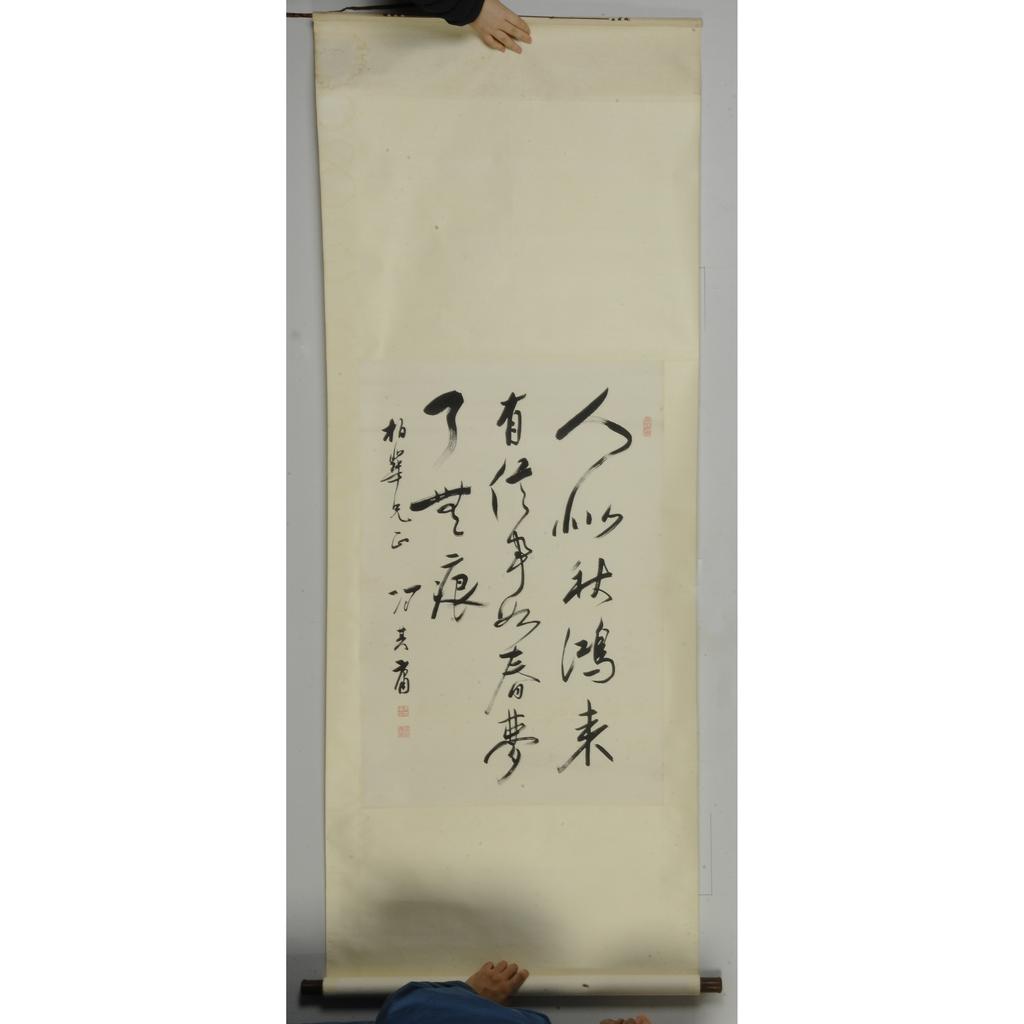 人似秋鴻来
有信事如春夢
了無痕
柏華兄正
馮其庸